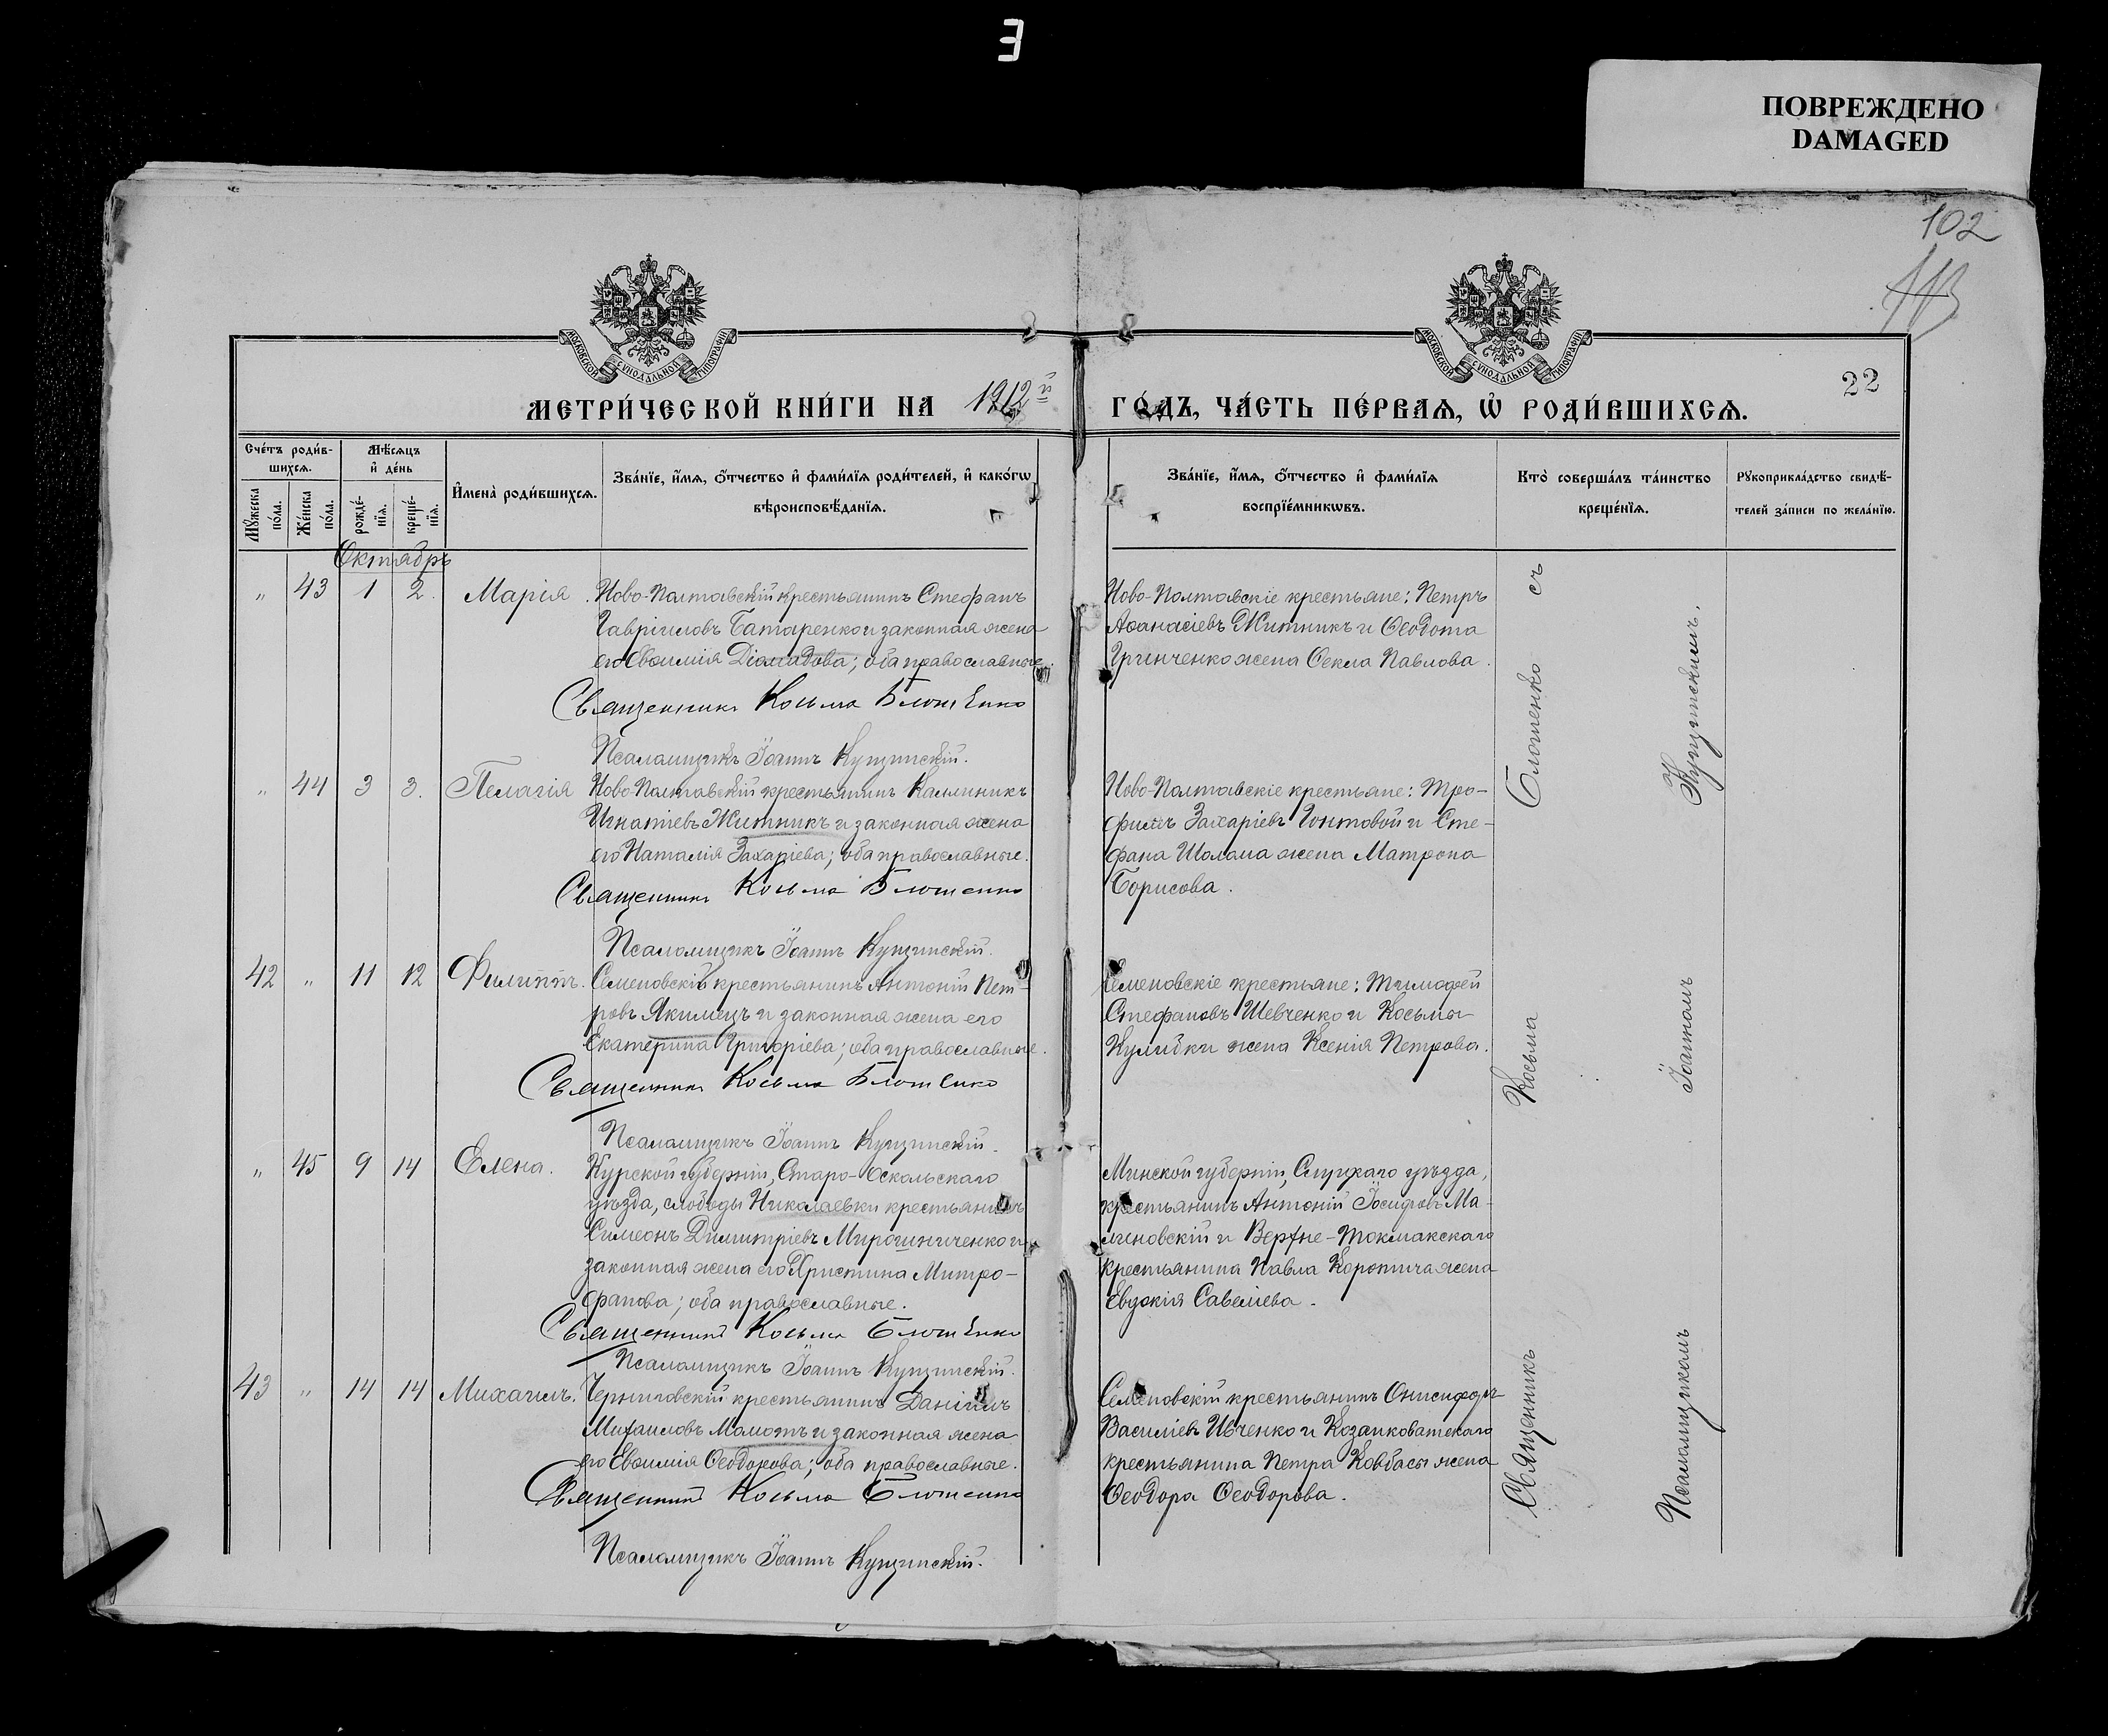 ПОВРЕЖДЕНО
DAMAGED
102
МОСКОВСКОЙ СѴНОДАЛЬНОЙ ТИПОГРАФІИ
МОСКОВСКОЙ СѴНОДАЛЬНОЙ ТИПОГРАФІИ
22
МЕТРИ́ЧЕСКОЙ КНИ́ГИ НА 1912й ГО́ДЪ, ЧА́СТЬ ПЕ́РВАѦ, Ѡ҆ РОДИ́ВШИХСѦ.
Сче́тъ роди́в-
шихсѧ.
Мѣ́сѧцъ
и҆ де́нь
Мꙋ́жеска
по́ла.
Же́нска
по́ла.
рожде́-
нїѧ.
креще́-
нїѧ.
И҆мена̀ роди́вшихсѧ.
Зва́нїе, и҆́мѧ, ѻ҆́тчество и҆ фами́лїѧ роди́телей, и҆ како́гѡ
вѣроисповѣ́данїѧ.
Зва́нїе, и҆́мѧ, ѻ҆́тчество и҆ фами́лїѧ
воспрїе́мникѡвъ.
Кто̀ соверша́лъ та́инство
креще́нїѧ.
Рꙋкоприкла́дство свидѣ́-
телей за́писи по жела́нїю.
Октябрь
" 43 1 2. Марія. Ново-Полтавскій крестьянинъ Стефанъ
Гавріиловъ Батаренко и законная жена
его Евѳимія Діомидова; оба православные.
Священникъ Косьма Блошенко
Псаломщикъ Іоаннъ Купчинскій.
Ново-Полтавскіе крестьяне: Петръ
Аѳанасіевъ Житникъ и Ѳеодота
Гринченко жена Ѳекла Павлова.
" 44 3 3. Пелагія Ново-Полтавскій крестьянинъ Каллиникъ
Игнатіевъ Житникъ и законная жена
его Наталія Захаріева; оба православные.
Священникъ Косьма Блошенко
Псаломщикъ Іоаннъ Купчинскій.
Ново-Полтавскіе крестьяне: Тро-
фимъ Захаріевъ Гонтовой и Сте-
фана Шолама жена Матрона
Борисова.
42 " 11 12 Филиппъ. Семеновскій крестьянинъ Антоній Пет-
ровъ Якимецъ и законная жена его
Екатерина Григоріева; оба православные.
Священникъ Косьма Блошенко
Псаломщикъ Іоаннъ Купчинскій.
Семеновскіе крестьяне: Тимофей
Стефановъ Шевченко и Косьмы
Кулибки жена Ксенія Петрова.
" 45 9 14 Елена. Курской губерніи, Старо-Оскольскаго
уѣзда, слободы Николаевки крестьянинъ
Симеонъ Димитріевъ Мирошниченко и
законная жена его Христина Митро-
фанова; оба православные.
Священникъ Косьма Блошенко
Псаломщикъ Іоаннъ Купчинскій.
Минской губерніи, Слуцкаго уѣзда,
крестьянинъ Антоній Іосифовъ Ма-
линовскій и Верхне-Токмакскаго
крестьянина Павла Коротича жена
Евдокія Савеліева.
43 " 14 14 Михаилъ. Черниговскій крестьянинъ Даніилъ
Михаиловъ Мамотъ и законная жена
его Евѳимія Ѳеодорова; оба православные.
Священникъ Косьма Блошенко
Псаломщикъ Іоаннъ Купчинскій.
Семеновскій крестьянинъ Онисифоръ
Василіевъ Ивченко и Козанковатскаго
крестьянина Петра Ковбасы жена
Ѳеодора Ѳеодорова.
Священникъ Косьма Блошенко съ
Псаломщикомъ Іоанномъ Купчинскимъ.